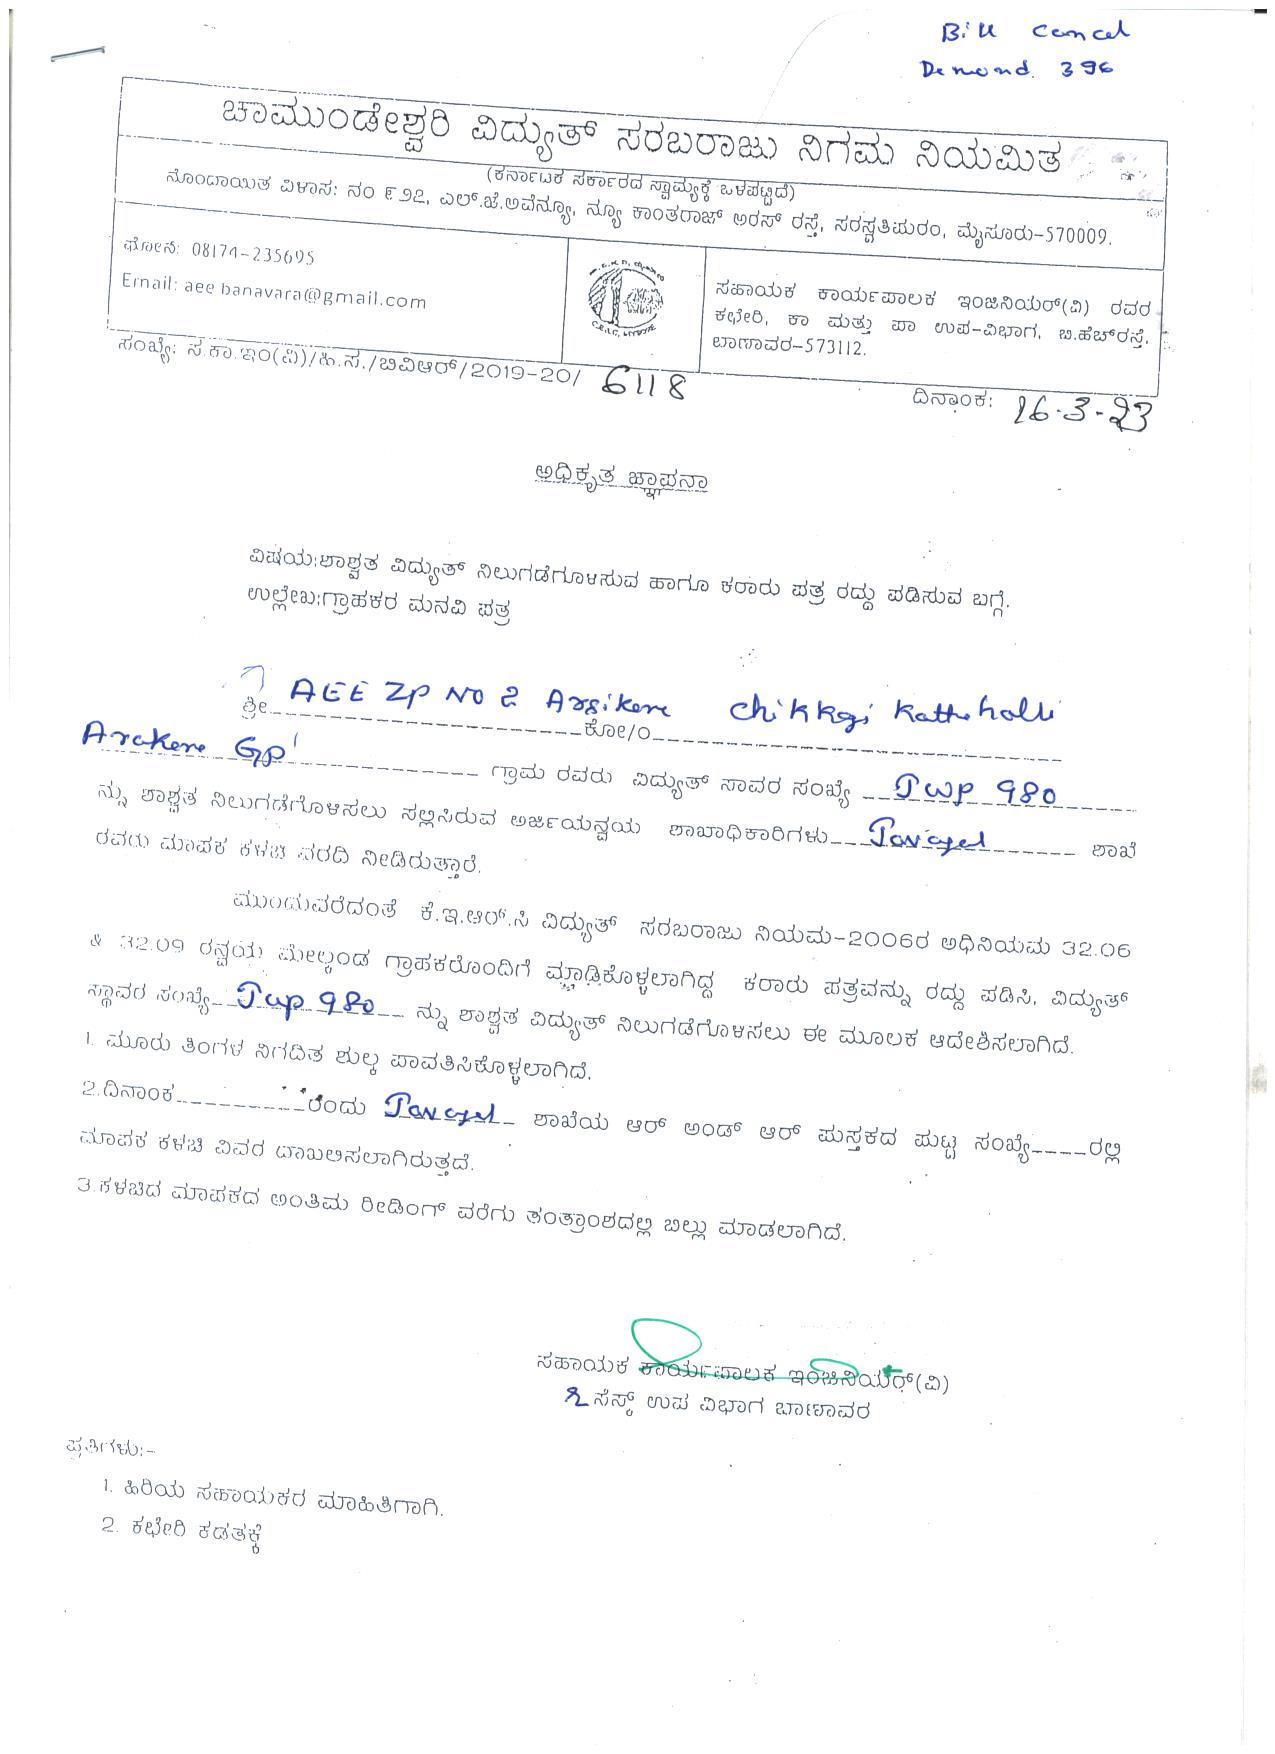 Bill cancel
Demand. 396
ಚಾಮುಂಡೇಶ್ವರಿ ವಿದ್ಯುತ್ ಸರಬರಾಜು ನಿಗಮ ನಿಯಮಿತ
(ಕರ್ನಾಟಕ ಸರ್ಕಾರದ ಸ್ವಾಮ್ಯಕ್ಕೆ ಒಳಪಟ್ಟಿದೆ)
ನೊಂದಾಯಿತ ವಿಳಾಸ: ನಂ ೯೨೭, ಎಲ್.ಜೆ.ಅವೆನ್ಯೂ, ನ್ಯೂ ಕಾಂತರಾಜ್ ಅರಸ್ ರಸ್ತೆ, ಸರಸ್ವತಿಪುರಂ, ಮೈಸೂರು-570009.
ಫೋನ: 08174-235695
Email: aee banavara@gmail.com
ಸಹಾಯಕ ಕಾರ್ಯಪಾಲಕ ಇಂಜನಿಯರ್(ವಿ) ರವರ
ಕಛೇರಿ, ಕಾ ಮತ್ತು ಪಾ ಉಪ-ವಿಭಾಗ, ಬಿ.ಹೆಚ್‌ರಸ್ತೆ,
ಬಾಣಾವರ-573112.
ಸಂಖ್ಯೆ: ಸ.ಕಾ.ಇಂ(ವಿ)/ಹಿ.ಸ./ಬಿವಿಆರ್/2019-20/ 6118
ದಿನಾಂಕ: 16-3-23
ಅಧಿಕೃತ ಜ್ಞಾಪನಾ
ವಿಷಯ:ಶಾಶ್ವತ ವಿದ್ಯುತ್ ನಿಲುಗಡೆಗೊಳಿಸುವ ಹಾಗೂ ಕರಾರು ಪತ್ರ ರದ್ದು ಪಡಿಸುವ ಬಗ್ಗೆ.
ಉಲ್ಲೇಖ:ಗ್ರಾಹಕರ ಮನವಿ ಪತ್ರ
ಶ್ರೀ AEE ZP NO 2 Arsikere ಕೋ/ಂ
Arakere GP ಗ್ರಾಮ ರವರು ವಿದ್ಯುತ್ ಸಾವರ ಸಂಖ್ಯೆ Jwp 980
ನ್ನು ಶಾಶ್ವತ ನಿಲುಗಡೆಗೊಳಿಸಲು ಸಲ್ಲಿಸಿರುವ ಅರ್ಜಿಯನ್ವಯ ಶಾಖಾಧಿಕಾರಿಗಳು Javagal ಶಾಖೆ
ರವರು ಮಾಪಕ ಕಳಚಿ ವರದಿ ನೀಡಿರುತ್ತಾರೆ.
ಮುಂದುವರೆದಂತೆ ಕೆ.ಇ.ಆರ್.ಸಿ ವಿದ್ಯುತ್ ಸರಬರಾಜು ನಿಯಮ-2006ರ ಅಧಿನಿಯಮ 32.06
& 32.09 ರನ್ವಯ ಮೇಲ್ಕಂಡ ಗ್ರಾಹಕರೊಂದಿಗೆ ಮಾಡಿಕೊಳ್ಳಲಾಗಿದ್ದ ಕರಾರು ಪತ್ರವನ್ನು ರದ್ದು ಪಡಿಸಿ, ವಿದ್ಯುತ್
ಸ್ಥಾವರ ಸಂಖ್ಯೆ Jwp 980 ನ್ನು ಶಾಶ್ವತ ವಿದ್ಯುತ್ ನಿಲುಗಡೆಗೊಳಿಸಲು ಈ ಮೂಲಕ ಆದೇಶಿಸಲಾಗಿದೆ.
1. ಮೂರು ತಿಂಗಳ ನಿಗದಿತ ಶುಲ್ಕ ಪಾವತಿಸಿಕೊಳ್ಳಲಾಗಿದೆ.
2.ದಿನಾಂಕ__________ರಂದು Javagal ಶಾಖೆಯ ಆರ್ ಅಂಡ್ ಆರ್ ಪುಸ್ತಕದ ಪುಟ್ಟ ಸಂಖ್ಯೆ____ರಲ್ಲಿ
ಮಾಪಕ ಕಳಚಿ ವಿವರ ದಾಖಲಿಸಲಾಗಿರುತ್ತದೆ.
3.ಕಳಚಿದ ಮಾಪಕದ ಅಂತಿಮ ರೀಡಿಂಗ್ ವರೆಗು ತಂತ್ರಾಂಶದಲ್ಲಿ ಬಿಲ್ಲು ಮಾಡಲಾಗಿದೆ.
ಸಹಾಯಕ ಕಾರ್ಯಪಾಲಕ ಇಂಜಿನಿಯರ್(ವಿ)
ಸೆಸ್ಕ್ ಉಪ ವಿಭಾಗ ಬಾಣಾವರ
ಪ್ರತಿಗಳು:-
1. ಹಿರಿಯ ಸಹಾಯಕರ ಮಾಹಿತಿಗಾಗಿ.
2. ಕಛೇರಿ ಕಡತಕ್ಕೆ